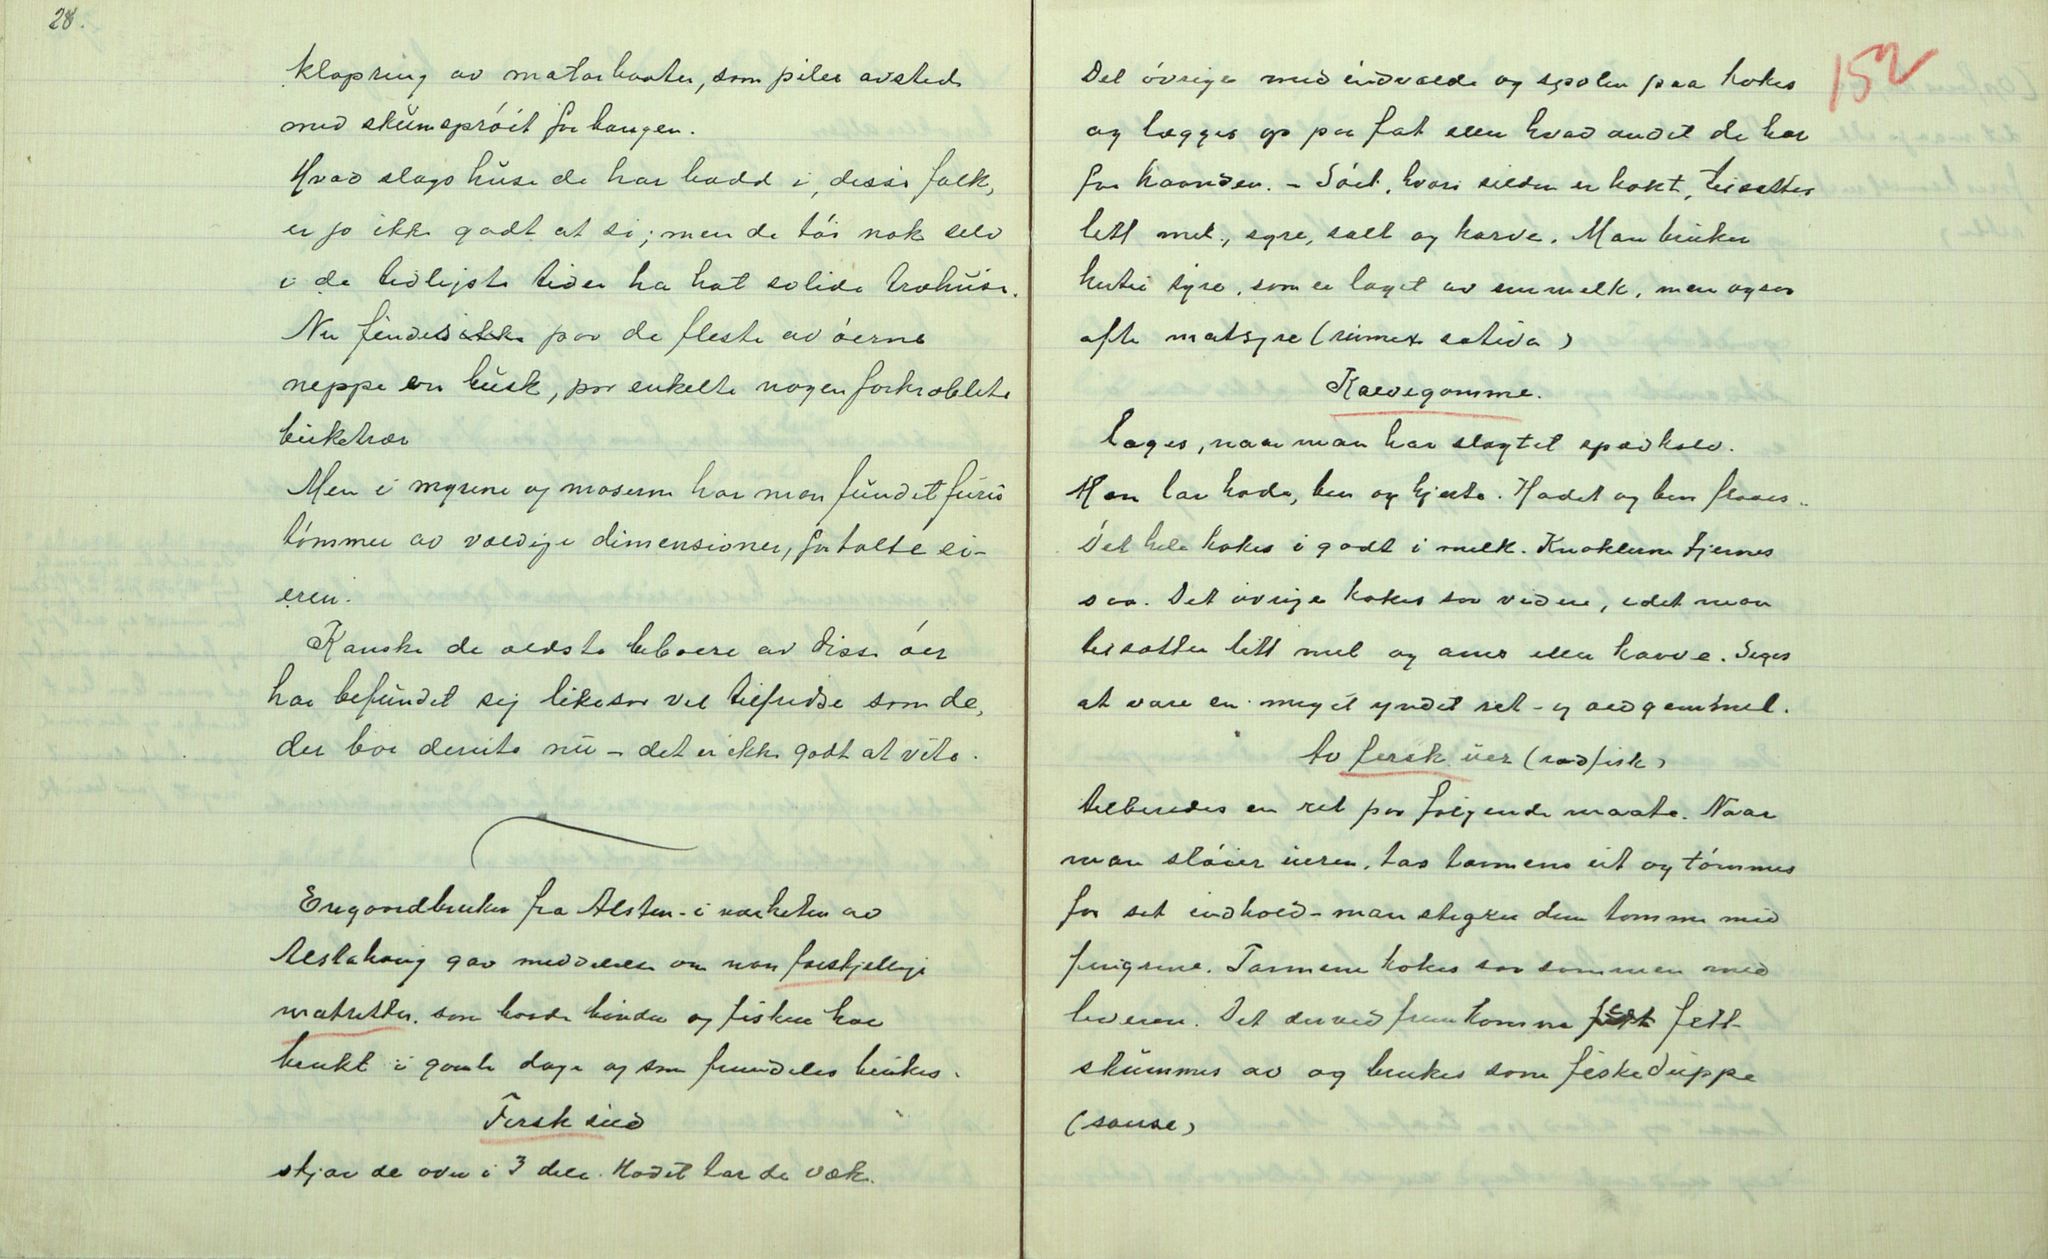 28.
klapring av motorbaater, som piler avsted
med skumsprøit for baugen.
Hvad slags huse de har bodd i, disse folk,
er jo ikke godt at si; men de tør nok selv
i de tidligste tider ha hat solide træhuse.
Nu findes ikke paa de fleste av øerne
neppe en busk, paa enkelte nogen forkrøblete
birketrær
Men i myrene og moserne har man fundet furu
tømmer av vældige dimensioner, fortalte ei-
eren.
Kanske de ældste beboere av disse øer
har befundet sig likesaa vel tilfredse som de,
der bor derute nu – det er ikke godt at vite.
En gaardbruker fra Alsten - i nærheten av
Alstahaug gav meddelelse om noen forskjellige
matretter, som baade bønder og fiskere har
brukt i gamle dage og som fremdeles brukes.
Fersk sild
skjær de over i 3 dele. Hodet tar de væk.
152
Det øvrige med indvolde og spolen paa kokes
og lægges op paa fat eller hvad andet de har
for haanden. – Sóet, hvori silden er kokt, tilsættes
litt mel, syre, salt og karve. Man bruker
hertil syre, som er laget av surmelk, men ogsaa
ofte matsyre (rumex sativa)
Kalvegomme.
lages, naar man har slagtet spædkalv.
Man tar hode, ben og hjerte. Hodet og ben flaaes.
Det hele kokes i godt i melk. Knoklerne fjernes
saa. Det øvrige kokes saa videre, idet man
tilsætter litt mel og anis eller karve. Siges
at være en meget yndet ret - og ældgammel.
Av fersk uer (rødfisk)
tilberedes en ret paa følgende maate. Naar
man sløier ueren, tas tarmene ut og tømmes
for sit indhold - man stryker dem tomme med
fingrene. Tarmene kokes saa sammen med
leveren. Det derved fremkomne fett
skummes av og brukes som fiskeduppe
(sause)